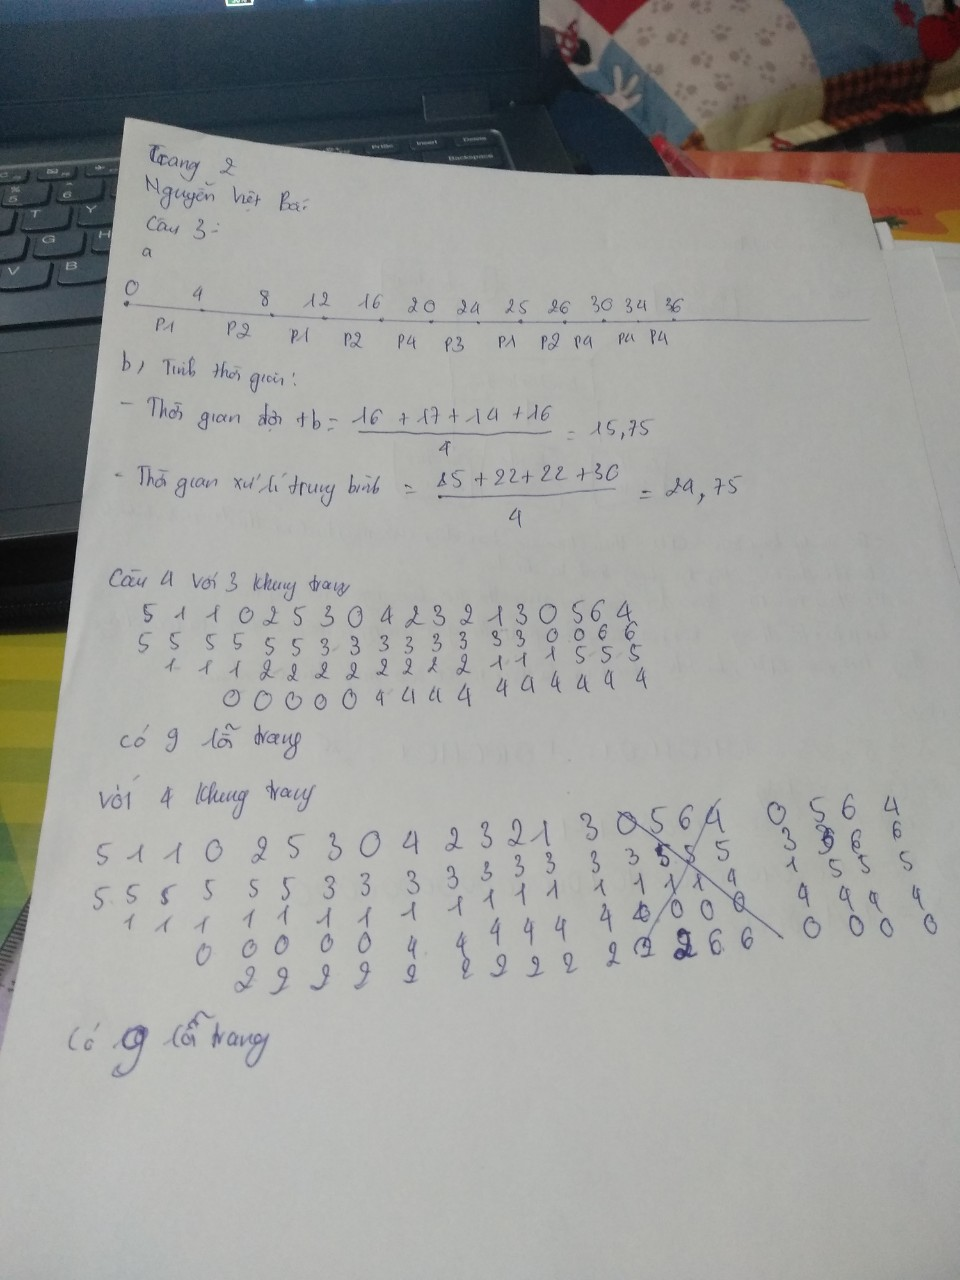 Trang 2
Nguyễn Việt Bá
Câu 3:
a
0 4 8 12 16 20 24 25 26 30 34 36
P1 P2 P1 P2 P4 P3 P1 P2 P4 P4 P4
b, Tính thời gian:
- Thời gian đợi tb = 16 + 17 + 14 + 16 / 4 = 15,75
- Thời gian xử lí trung bình = 25 + 22 + 22 + 30 / 4 = 24,75
Câu 4 với 3 khung trang
5 1 1 0 2 5 3 0 4 2 3 2 1 3 0 5 6 4
5 5 5 5 5 5 3 3 3 3 3 3 3 3 0 0 6 6
1 1 1 2 2 2 2 2 2 2 2 1 1 1 5 5 5
0 0 0 0 0 4 4 4 4 4 4 4 4 4 4
có 9 lỗi trang
với 4 khung trang
5 1 1 0 2 5 3 0 4 2 3 2 1 3 0 5 6 4 0 5 6 4
5 5 5 5 5 5 3 3 3 3 3 3 3 3 3 5 5 5 3 6 6
1 1 1 1 1 1 1 1 1 1 1 1 1 1 1 1 4 1 5 5 5
0 0 0 0 0 4 4 4 4 4 4 0 0 0 0 4 4 4 4
2 2 2 2 2 2 2 2 2 2 2 2 6 6 0 0 0 0
Có 9 lỗi trang